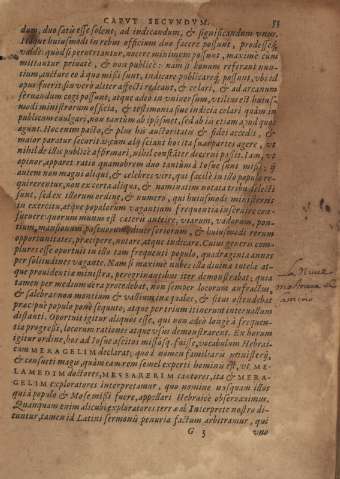 CAPVT SECVNDVM. 53
dum, duo satis esse solent, ad indicandum, & significandum vno:
Itaque huiusmodi in rebus officium duo facere possunt, prodesseq́;
valde: quòd si peruertantur, nocere minimum possunt, maximè cum
mittantur priuatè, & non publicè: nam si bonum referant nun-
tium, auctore eo à quo missi sunt, indicare, publicareq́; possunt, vbi ad
opus fuerit, sin verò aliter affecti redeant, & celari, & ad arcanum
seruandum cogi possunt, atque adeò in vniuersum, vtilius est huius-
modi ministrorum officia, & testimonia siue indicia celari quàm in
publicum euulgari, non tantùm ab ipsismet, sed ab iis etiam à quibus
agunt. Hoc enim pacto, & plus his auctoritatis & fidei accedit, &
maior paratur securitas, cùm alij sciant hos ita suas partes agere, vt
nihil de illis publicè affirmari, nihil constanter decerni possit. Iam, vt
opinor, apparet ratio quamobrem duo tantùm à Iosue sint missi,
autem non magni aliqui, & celebres viri, qui facilè in illo populo re-
quirerentur, non ex certa aliqua, & nominatim notata tribu delecti
sunt, sed ex illorum ordine, & numero, qui huiusmodi ministeriis
in exercitu, atque popularum vagantium frequentia inseruire con-
sueuere: quorum munus est cæteris anteire, viarum, vadorum, pon-
tium, mansionum, diuersoriorum, & huiusmodi rerum
opportunitates, præcipere, notare, atque indicare. Cuius generis com-
plures esse oportuit in illo tam frequenti populo, quadraginta annos
per solitudines vagante. Nam si maximè nubes illa diuinæ tutela at-
que prouidentiæ ministra, peregrinantibus iter demonstrabat; quia
tamen per medium aëra procedebat, non semper locorum anfractus,
& salebras non montium & vallium inæquales, & situs ostendebat
præcipuè populo ponè sequuto, atque per trium itinerum interuallum
distanti. Oportuit igitur aliquos esse, qui non adeò longè à frequen-
tia progressi, locorum rationes atque vsus demonstrarent. Ex horum
igitur ordine, hos ad Iosue ascitos missosq́; fuisse, vocabulum Hebrai-
cum MERAGELIM declarat; quod nomen familiaris ministerij,
& consueti magis, quàm earum semel experti hominis est, vt ME-
LAMEDIM doctores, MESSARERIM cantores, ita & MERA-
GELIM exploratores interpretamur, quo nomine nusquam illos
qui à populo & Mose missi fuere, appellari Hebraicè obseruauimus.
Quanquam enim alicubi exploratores terræ ab Interprete nostro di-
cuntur, tamen id Latini sermonis penuria factum arbitramur, qui
G 3 vno